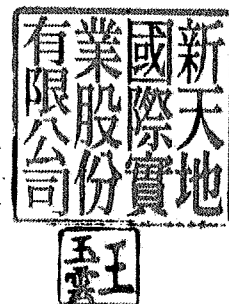 新天地
國際實
業股份
有限公司
王
玉雲